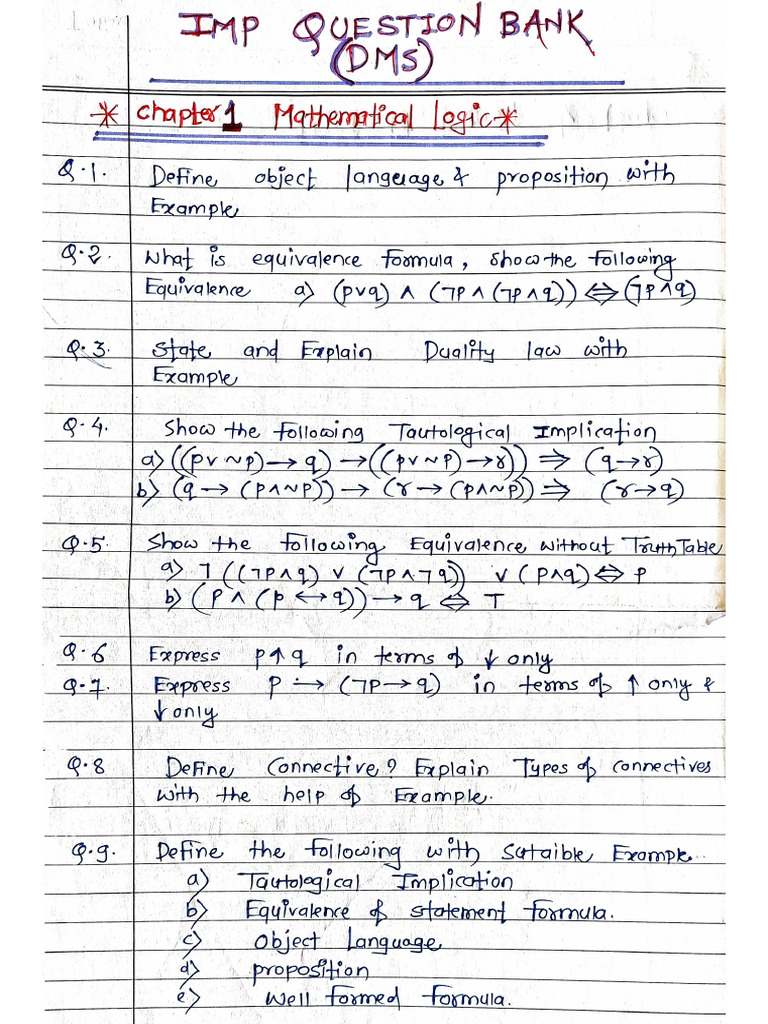 IMP QUESTION BANK
(DMS)
* Chapter 1 Mathematical Logic *
Q.1. Define object language & proposition with
Example
Q.2. What is equivalence formula, show the following
Equivalence a) (p∨q) ∧ (¬p ∧ (¬p ∧ q)) ⇔ (¬p ∧ q)
Q.3. State and Explain Duality law with
Example
Q.4. Show the following Tautological Implication
a) ((p∨ ~p) → q) → ((p∨ ~p) → r)) ⇒ (q→r)
b) (q → (p∧~p)) → (r → (p∧~p)) ⇒ (r→q)
Q.5. Show the following Equivalence without Truth Table
a) ¬ ((¬p∧q) ∨ (¬p∧¬q)) ∨ (p∧q) ⇔ p
b) (p ∧ (p ↔ q)) → q ⇔ T
Q.6 Express p↑q in terms of ↓ only
Q.7. Express p → (¬p → q) in terms of ↑ only &
↓ only
Q.8 Define Connective? Explain Types of connectives
with the help of Example.
Q.9. Define the following with sutaible Example..
a) Tautological Implication
b) Equivalence of statement formula.
c) Object Language
d) proposition
e) Well formed formula.